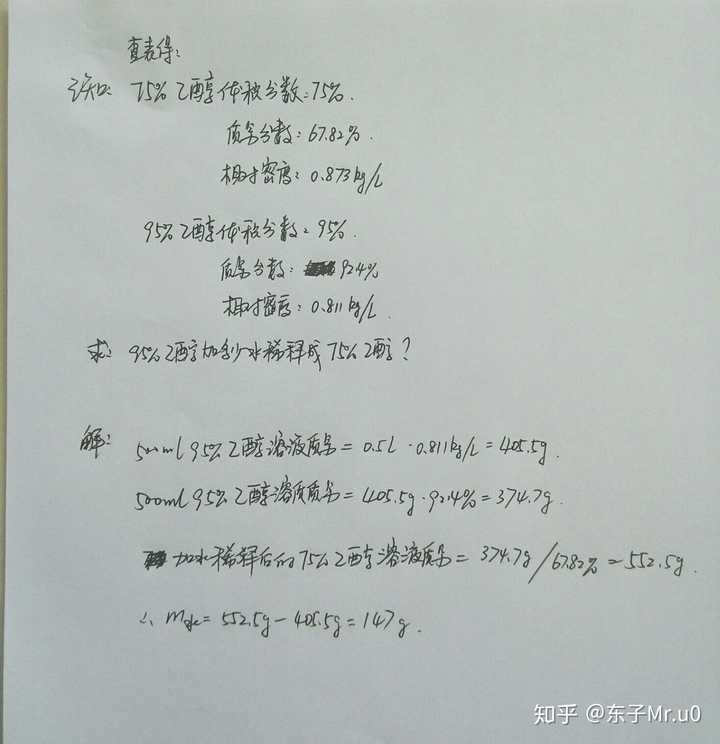 查表得:
已知: 75%乙醇体积分数:75%.
质量分数:67.82%.
相对密度:0.873kg/L
95%乙醇体积分数:95%.
质量分数: 92.4%
相对密度:0.811kg/L.
求: 95%乙醇加多少水稀释成75%乙醇?
解: 500ml 95%乙醇溶液质量=0.5L·0.811kg/L=405.5g.
500ml 95%乙醇溶质质量=405.5g·92.4%=374.7g.
加水稀释后的75%乙醇溶液质量=374.7g/67.82%=552.5g.
∴ m水=552.5g-405.5g=147g.
知乎 @东子Mr.u0